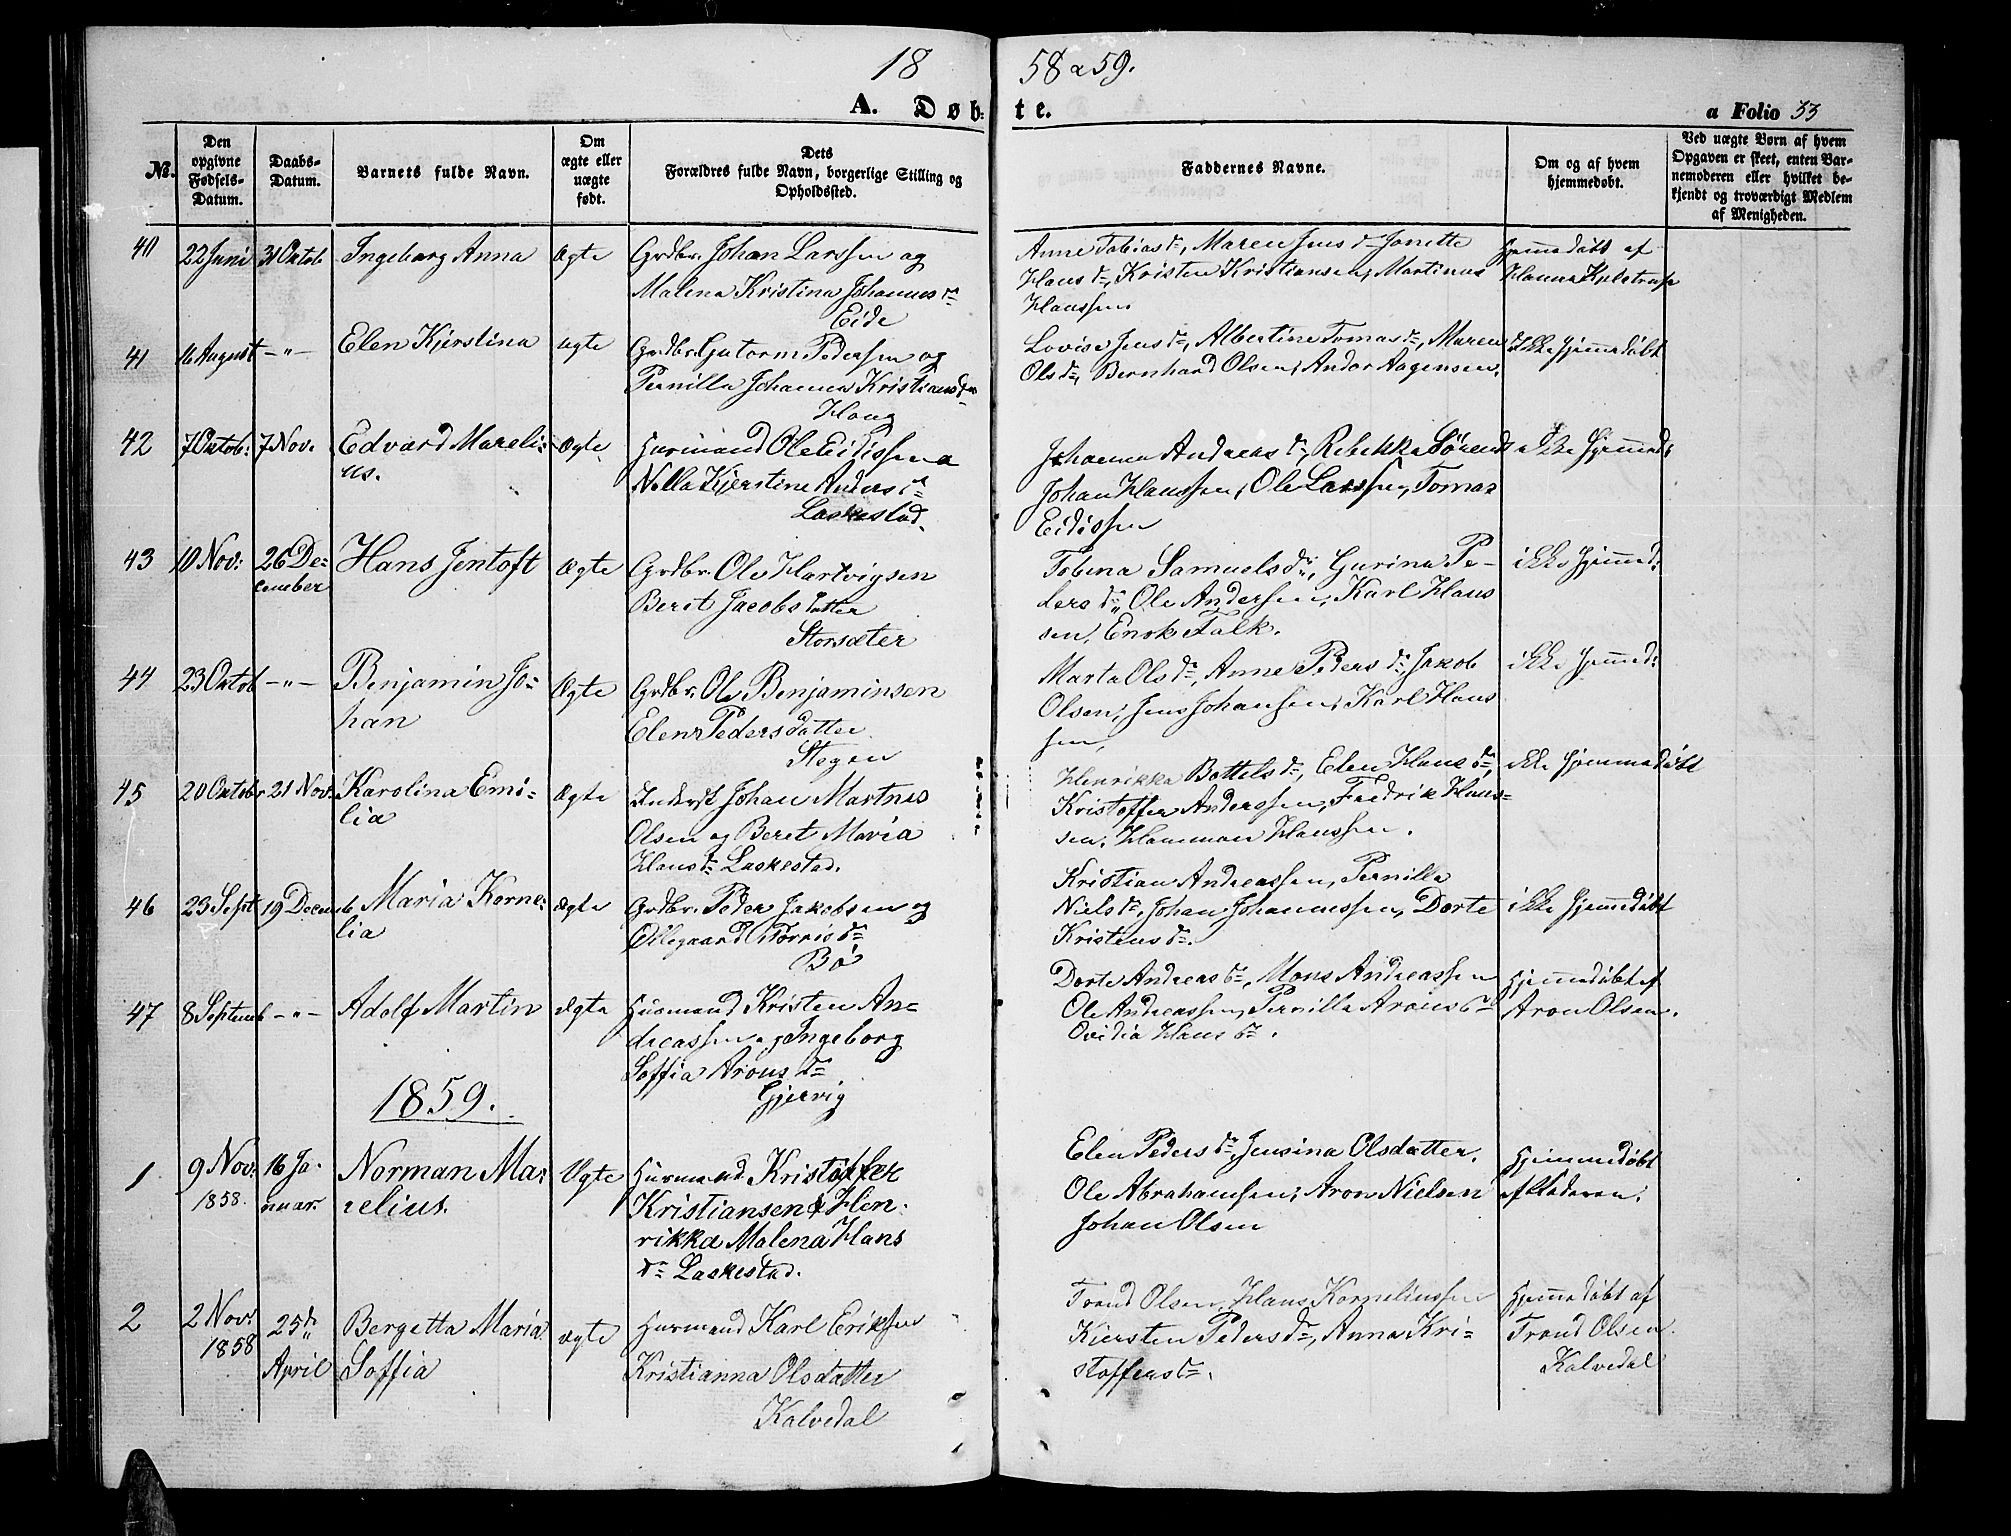 1858 & 59.
A. Døbte.
a Folio 33
No.
Den opgivne Fødsels-Datum.
Daabs-Datum.
Barnets fulde Navn.
Om ægte eller uægte født.
Dets Forældres fulde Navn, borgerlige Stilling og Opholdssted.
Faddernes Navne.
Om og af hvem hjemmedøbt.
Ved uægte Børn af hvem Opgaven er skeet, enten Barnemoderen eller hvilket bekjendt og troværdigt Medlem af Menigheden.
40 22 Juni 31 Octob Ingeborg Anna Ægte Grdbr. Johan Larssen og
Malena Kristina Johannes dr
Eide
Anne Tobias dr, Maren Jens dr Jonette
Hans dr, Kristen Kristiansen, Martinus
Hanssen
Hjemmedøbt af
Hanna
41 16 August -"- Elen Kjerstina ægte Grdbr. Gutorm Pedersen og
Pernilla Johanna Kristians dr
Haug
Lovise Jens dr, Albertine Tomas dr, Maren
Ols dr, Bernhard Olsen, Andor Aagensen.
Ikke hjemmedøbt
42 7 Octob: 7 Nov. Edvard Mareli-
us.
Ægte Husmand Ole Eidissen a
Nella Kjerstine Anders dr
Laskestad.
Johanna Andreas dr, Rebekka Sørens d
Johan Hanssen, Ole Larssen, Tomas
Eidissen
ikke Hjemmed:
43 10 Nov: 26 De-
cember
Hans Jentoft Ægte Grdbr. Ole Hartvigsen
Beret Jacobs datter
Storsæter
Tobina Samuels dr, Gurina Pe-
ders dr, Ole Andersen, Karl Hans
sen, Enok Falk.
ikke hjemmed:
44 23 Octob -"- Benjamin Jo-
han
Ægte Grdbr. Ole Benjaminsen
Elen Pedersdatter
Stegen
Marta Ols dr, Anne Peders dr, Jakob
Olsen, Jens Johansen, Karl Hans
sen,
ikke hjemmed:
45 20 Octobr 21 Nov. Karolina Emi-
lia
Ægte Inderst Johan Martnus
Olsen og Beret Maria
Hans dr Laskestad.
Henrikka Bottels dr, Elen Hans dr,
Kristoffer Anderssen, Fredrik Hans-
sen, Hanssen.
ikke hjemmedøbt
46 23 Sept 19 Decemb Maria Korne-
lia
Ægte Grdbr. Peder Jakobsen og
Ødlegaard Torris dr
Bø
Kristian Andreassen, Pernilla
Niels dr, Johan Johannessen, Dorte
Kristens dr.
ikke hjemmedøbt
47 8 Septemb -"- Adolf Martin Ægte Husmand Kristen An-
dreassen og Ingeborg
Soffia Arons dr
Gjervig
Dorte Andreas dr, Mons Andreassen
Ole Andreassen, Pernilla Arons dr
Ovidia Hans dr.
Hjemmedøbt af
Aron Olsen.
1859.
1 9 Nov:
1858.
16 Ja-
nuar.
Norman Ma-
relius.
Ægte Husmand Kristoffer
Kristiansen & Hen-
rikka Malena Hans
dr Laskestad.
Elen Peders dr, Jensina Olsdatter,
Ole Abrahamsen, Aron Nielsen
Johan Olsen
Hjemmedøbt
af Faderen.
2 2 Nov:
1858
25 de
April
Bergetta Maria
Soffia
ægte Husmand Karl Erikssen
Kristianna Olsdatter
Kalvedal
Trond Olsen, Hans Korneliussen
Kiersten Peders dr, Anna Kri-
stoffers dr.
Hjemmedøbt af
Trond Olsen
Kalvedal